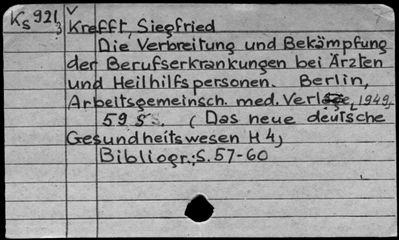 Ks 921, Krefft, Siegfried
Die Verbreitung und Bekämpfung
der Berufserkrankungen bei Ärzten
und Heilhilfspersonen. Berlin,
Arbeitsgemeinsch. med. Verlage, 1949,
59 S. (Das neue deutsche
Gesundheitswesen H 4)
Bibliogr.: S. 57-60